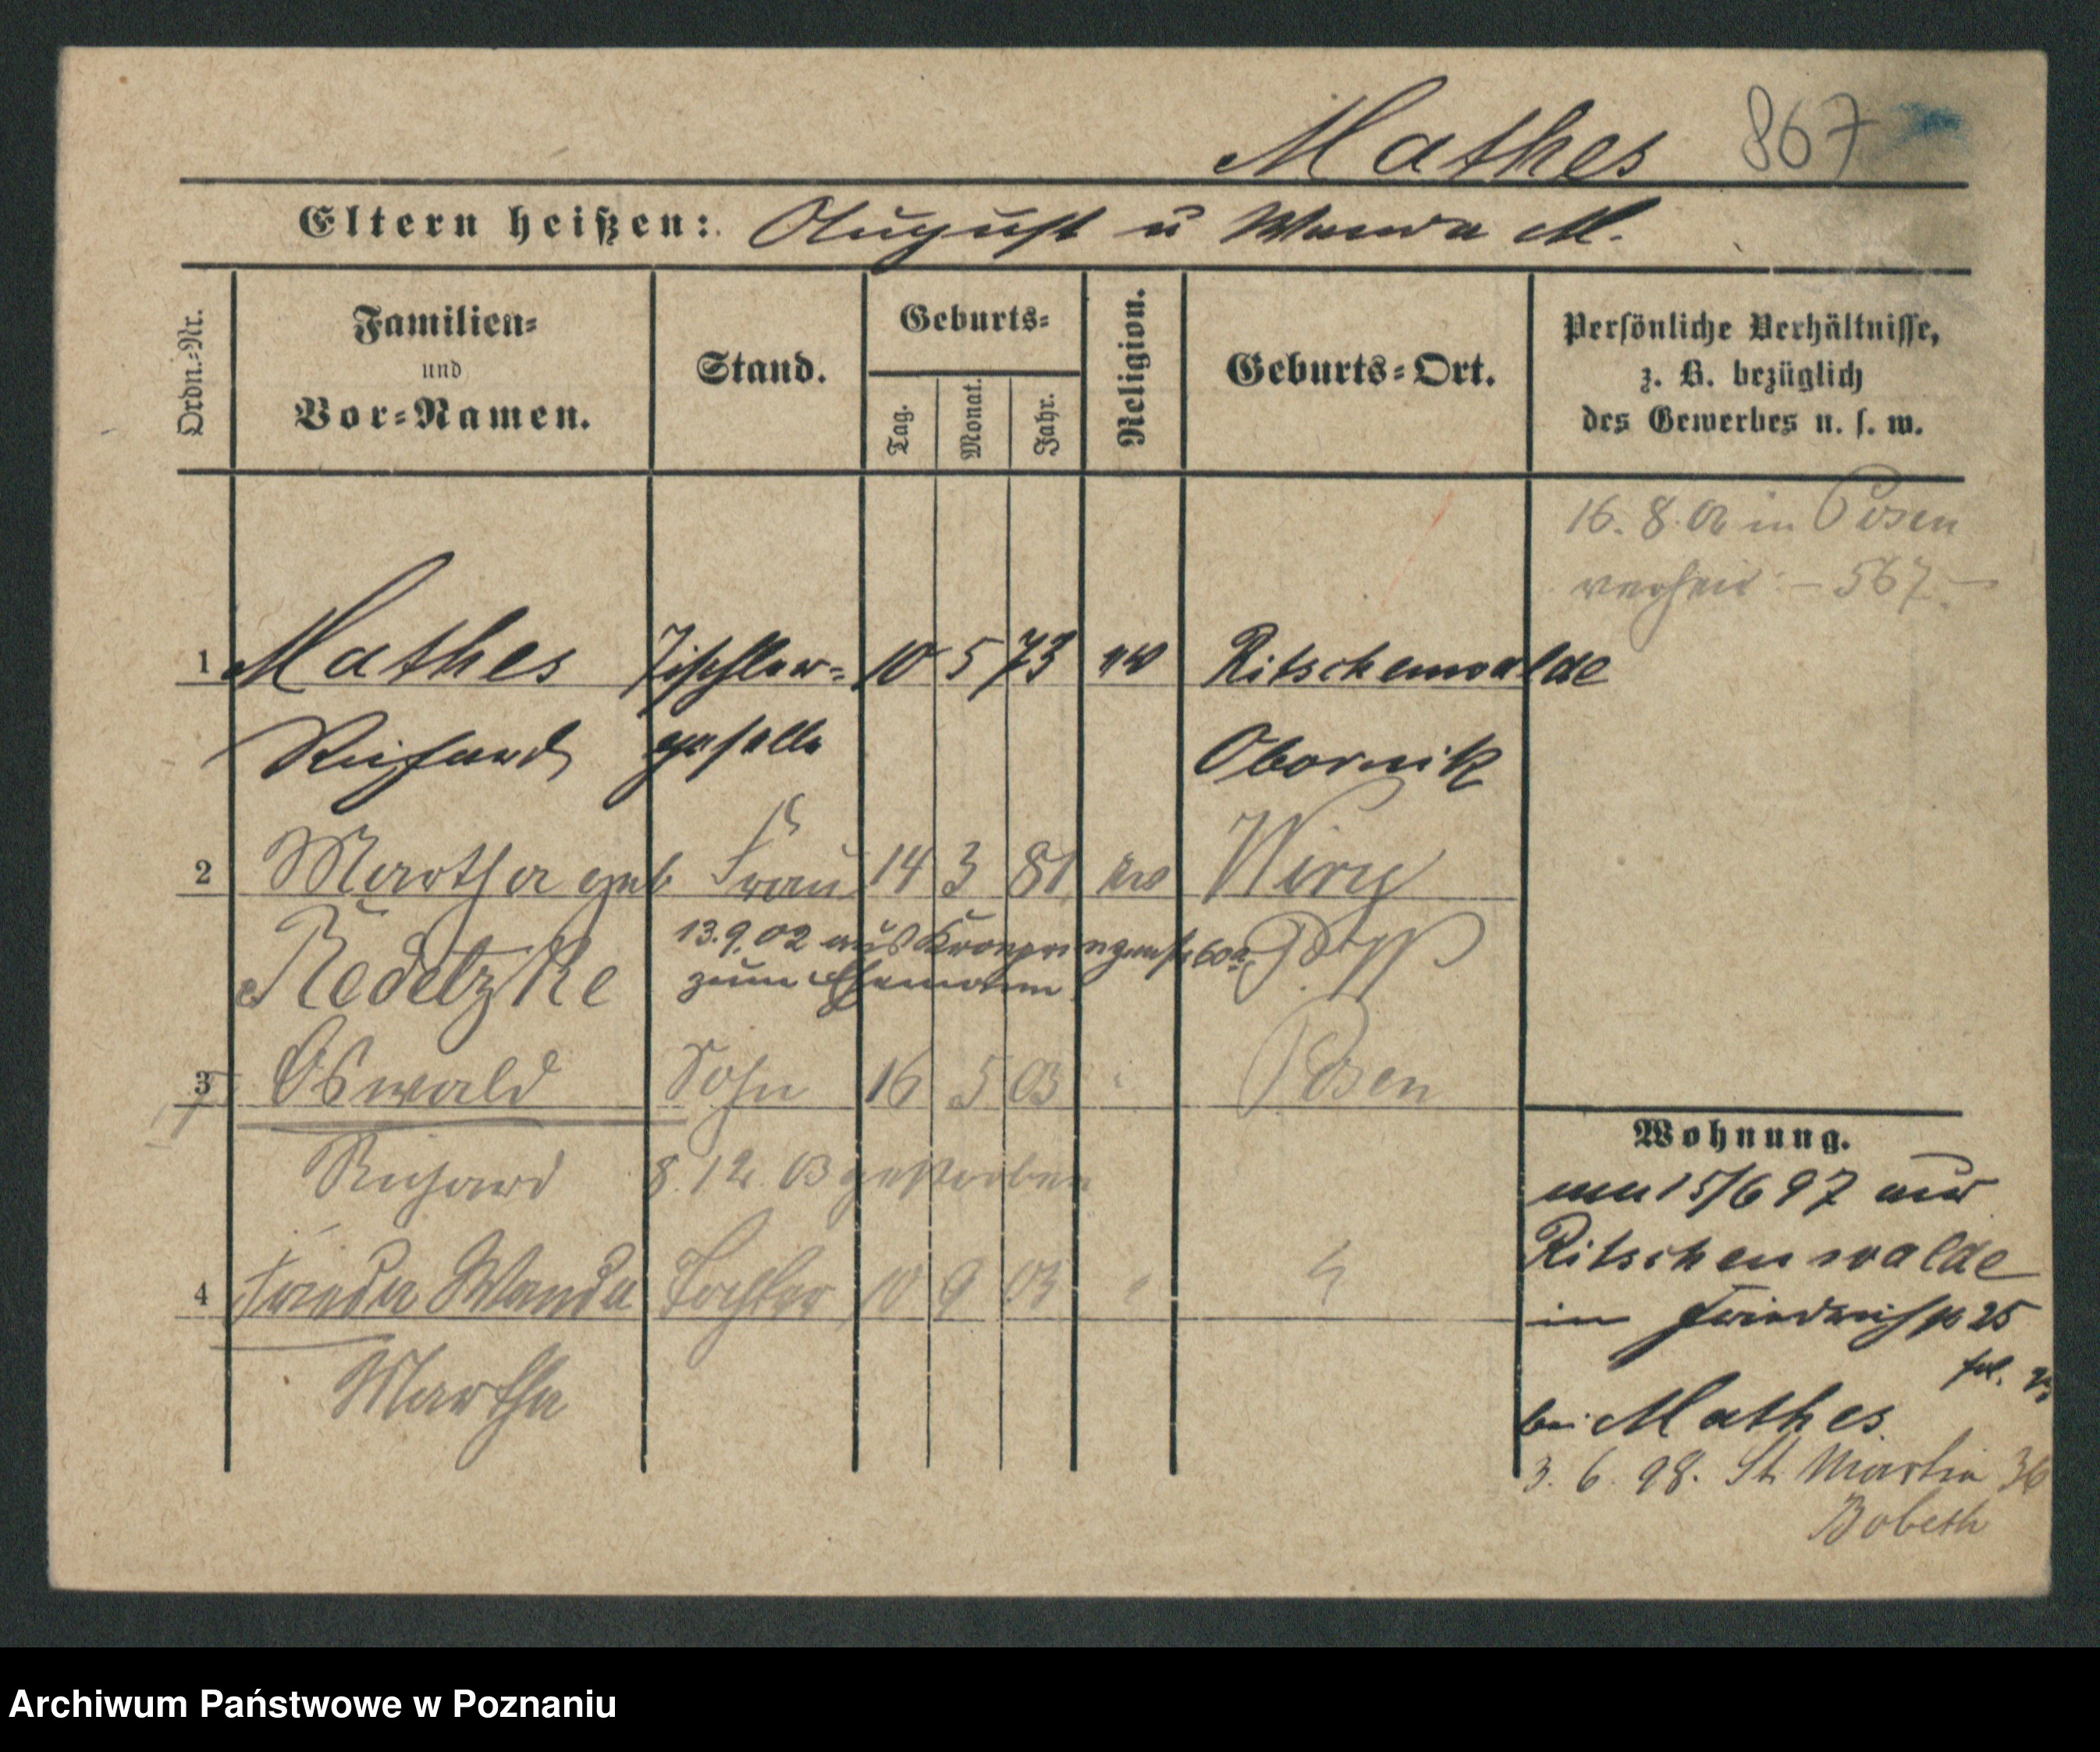 Mathes 867
Eltern heißen: August u Wanda M.
Ordn.=Nr.
Familien=
und
Vor=Namen.
Stand.
Geburts=
Tag.
Monat.
Jahr.
Religion.
Geburts=Ort.
Persönliche Verhältnisse,
z. B. bezüglich
des Gewerbes u. s. w.
16. 8. 02 in Posen
verheir: – 567 –
1 Mathes Tischler= 10 5 73 ev Ritschenwalde
Richard geselle Obornik
2 Martha geb Frau 14 3 81 ev Wiry
Redetzke 13. 9. 02 aus Kronprinzenst 60a
zum Ehemann
3 Oswald Sohn 16 5 03 " Posen
Richard 8. 12. 03 gestorben
4 Frieda Wanda Tochter 10 9 "
Martha
Wohnung.
15/6 97 aus
Ritschenwalde
in Friedrichst 25
bei Mathes
3. 6. 98. St. Martin 36
Bobeth
Archiwum Państwowe w Poznaniu